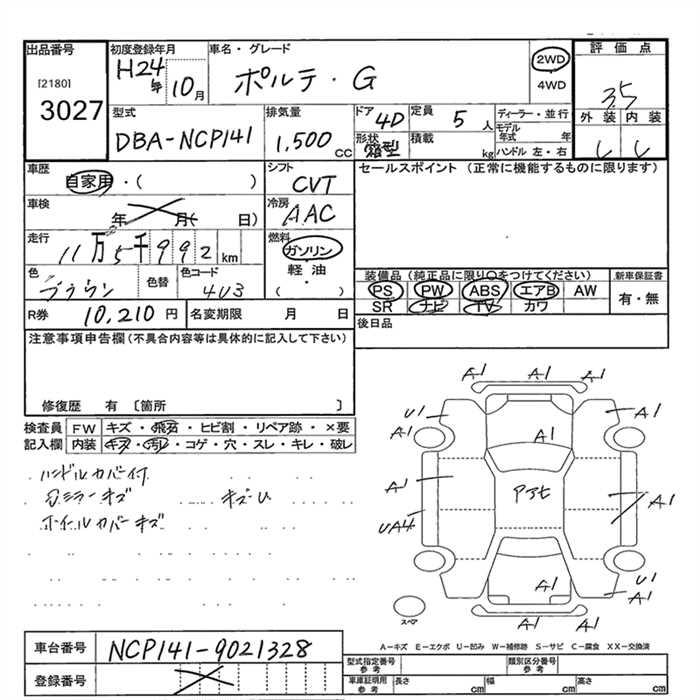 出品番号
[2180]
3027
初度登録年月
H24年 10月
車名・グレード
ポルテ・G
2WD
4WD
評価点
3.5
外装 内装
型式
DBA-NCP141
排気量
1,500 CC
ドア
4D
定員
5 人
形状
箱型
積載
kg
ディーラー・並行
モデル年式 年
ハンドル 左・右
車歴
自家用・( )
シフト
CVT
セールスポイント (正常に機能するものに限ります)
車検
年 月( 日)
冷房
AAC
走行
11万5千992 km
燃料
ガソリン
軽油
( )
色
ブラウン
色替
色コード
4U3
装備品 (純正品に限り〇をつけてください)
新車保証書
PS PW ABS エアB AW
SR ナビ TV カワ
有・無
R券
10,210 円
名変期限 月 日
後日品
注意事項申告欄 (不具合内容等は具体的に記入して下さい)
修復歴 有 〔箇所 〕
検査員記入欄
FW キズ・飛石・ヒビ割・リペア跡・×要
内装 キズ・汚レ・コゲ・穴・スレ・キレ・破レ
ハンドルカバー付
Dミラーキズ キズU
ホイールカバーキズ
A1 A1 A1
U1 A1
A1 A1
A1 アアヒ A1
UA4
A1 U1
A1
A1
スペア
A-キズ E-エクボ U-凹み W-補修跡 S-サビ C-腐食 XX-交換済
車台番号
NCP141-9021328
登録番号
型式指定番号 参考
類別区分番号 参考
車庫証明用 参考
長さ cm
幅 cm
高さ cm